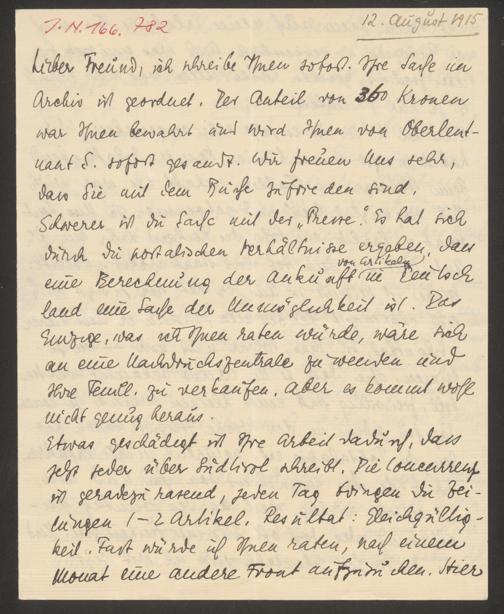 J. N. 166.782
12. August 1915
Lieber Freund, ich schreibe Ihnen sofort. Ihre Sache im
Archiv ist geordnet. Der Anteil von 360 Kronen
war Ihnen bewahrt und wird Ihnen von Oberleut-
nant S. sofort gesandt. Wir freuen uns sehr,
dass Sie mit dem Buche zufrieden sind.
Schwerer ist die Sache mit der „Presse“. Es hat sich
durch die postalischen Verhältnisse ergeben, dass
eine Berechnung der Ankunft von Artikeln in Deutsch
land eine Sache der Unmöglichkeit ist. Das
Einzige, was ich Ihnen raten würde, wäre sich
an eine Nachdruckszentrale zu wenden und
Ihre Feuill. zu verkaufen. Aber es kommt wohl
nicht genug heraus.
Etwas geschädigt ist Ihre Arbeit dadurch, dass
jetzt jeder über Südtirol schreibt. Die Concurrenz
ist geradezu rasend, jeden Tag bringen die Zei-
tungen 1–2 Artikel. Resultat: Gleichgültig-
keit. Fast würde ich Ihnen raten, nach einem
Monat eine andere Front aufzusuchen. Hier